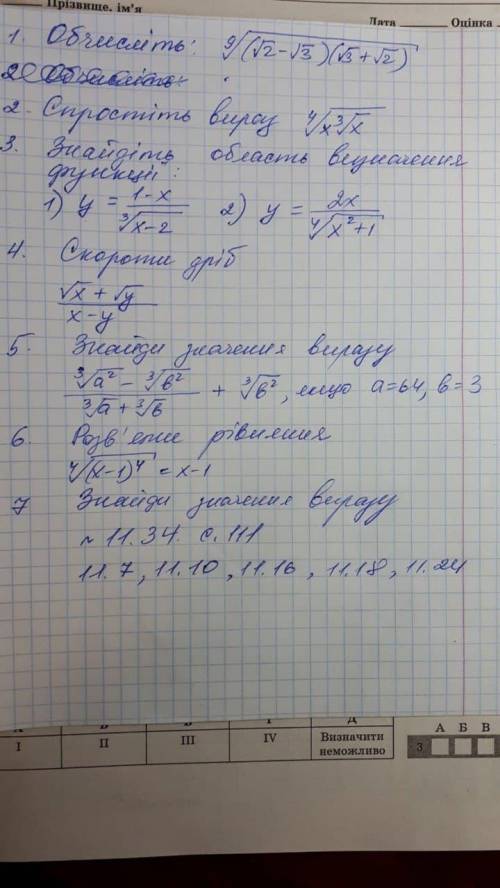 Прізвище, ім'я
Дата Оцінка
1. Обчисліть: ⁹√(√2-√3)(√3+√2)
2. Спростіть вираз ⁴√x³√x
3. Знайдіть область визначення
функції:
1) y = 1-x / ³√x-2 2) y = 2x / ⁴√x²+1
4. Скороти дріб
√x + √y / x-y
5. Знайди значення виразу
³√a² - ³√b² / ³√a + ³√b + ³√b², якщо a=64, b=3
6. Розв'яжи рівняння
⁴√(x-1)⁴ = x-1
7 Знайди значення виразу
~ 11.34. с.111
11.7, 11.10, 11.16, 11.18, 11.24
I II III IV Визначити неможливо
Д
А Б В
3